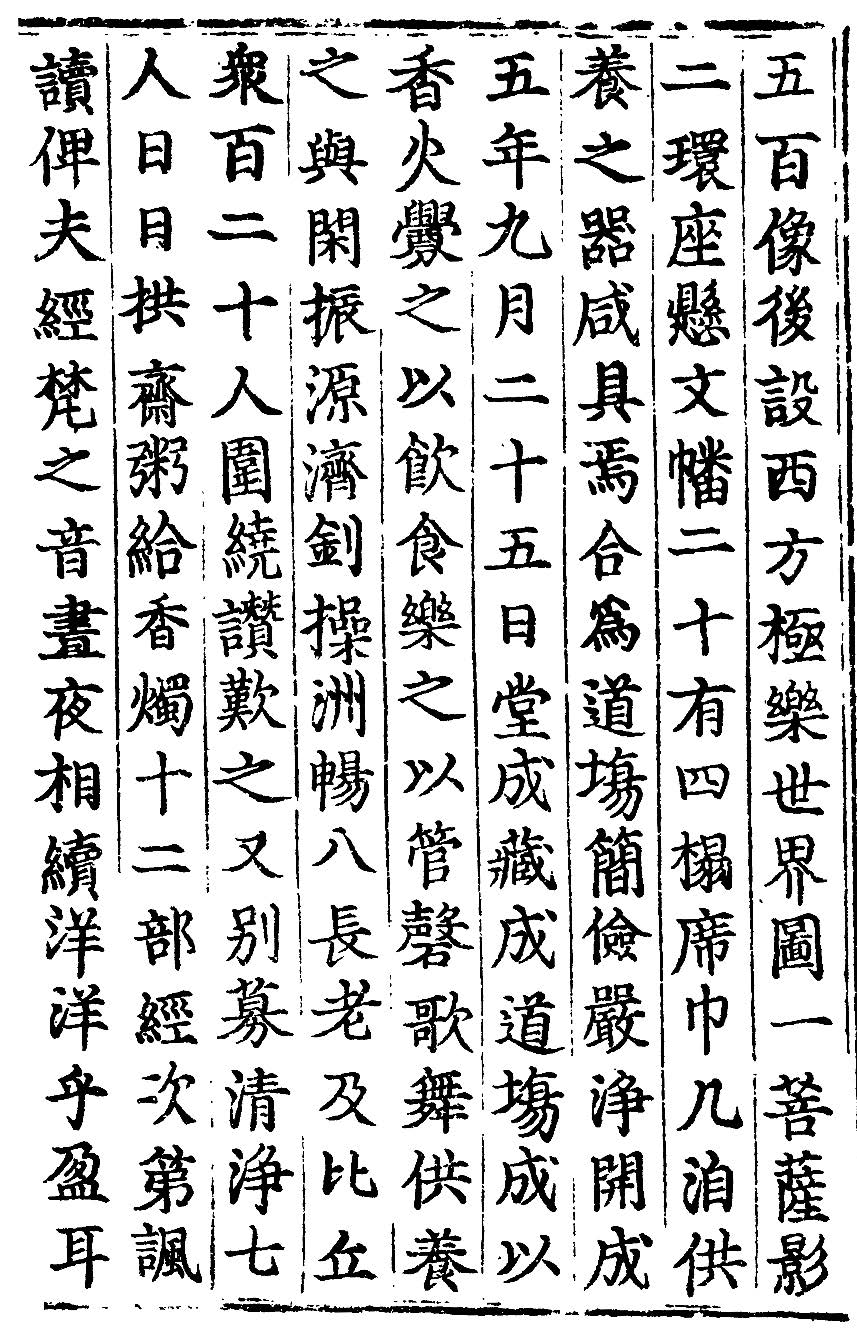 五百像後設西方極樂世界圖一菩薩影
二環座懸文幡二十有四榻席巾几洎供
養之器咸具焉合為道塲簡儉嚴淨開成
五年九月二十五日堂成藏成道塲成以
香火釁之以飲食樂之以管磬歌舞供養
之與閑振源濟釗操洲暢八長老及比丘
衆百二十人圍繞讃歎之又别募清淨七
人日日拱齋粥給香燭十二部經次第諷
讀俾夫經梵之音晝夜相續洋洋乎盈耳